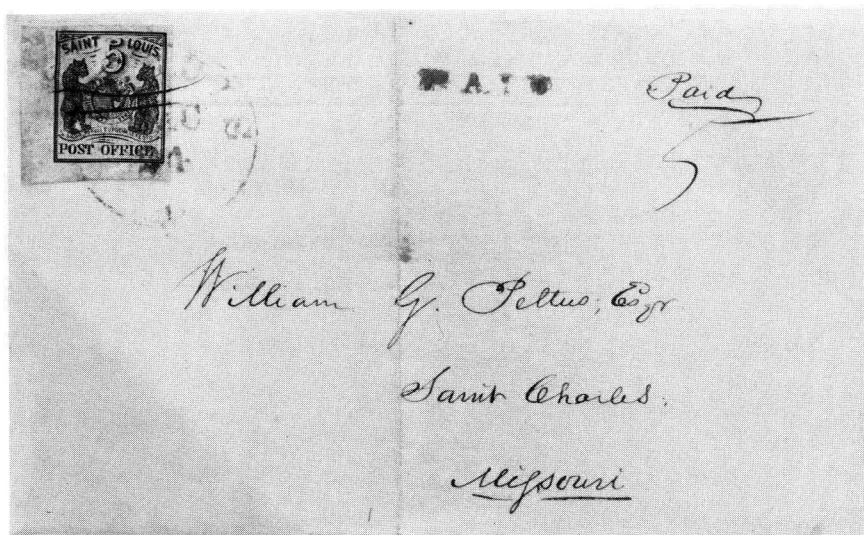 SAINT LOUIS
5
POST OFFICE
PAID
Paid
5
William G. Pettus, Esqr
Saint Charles.
Missouri